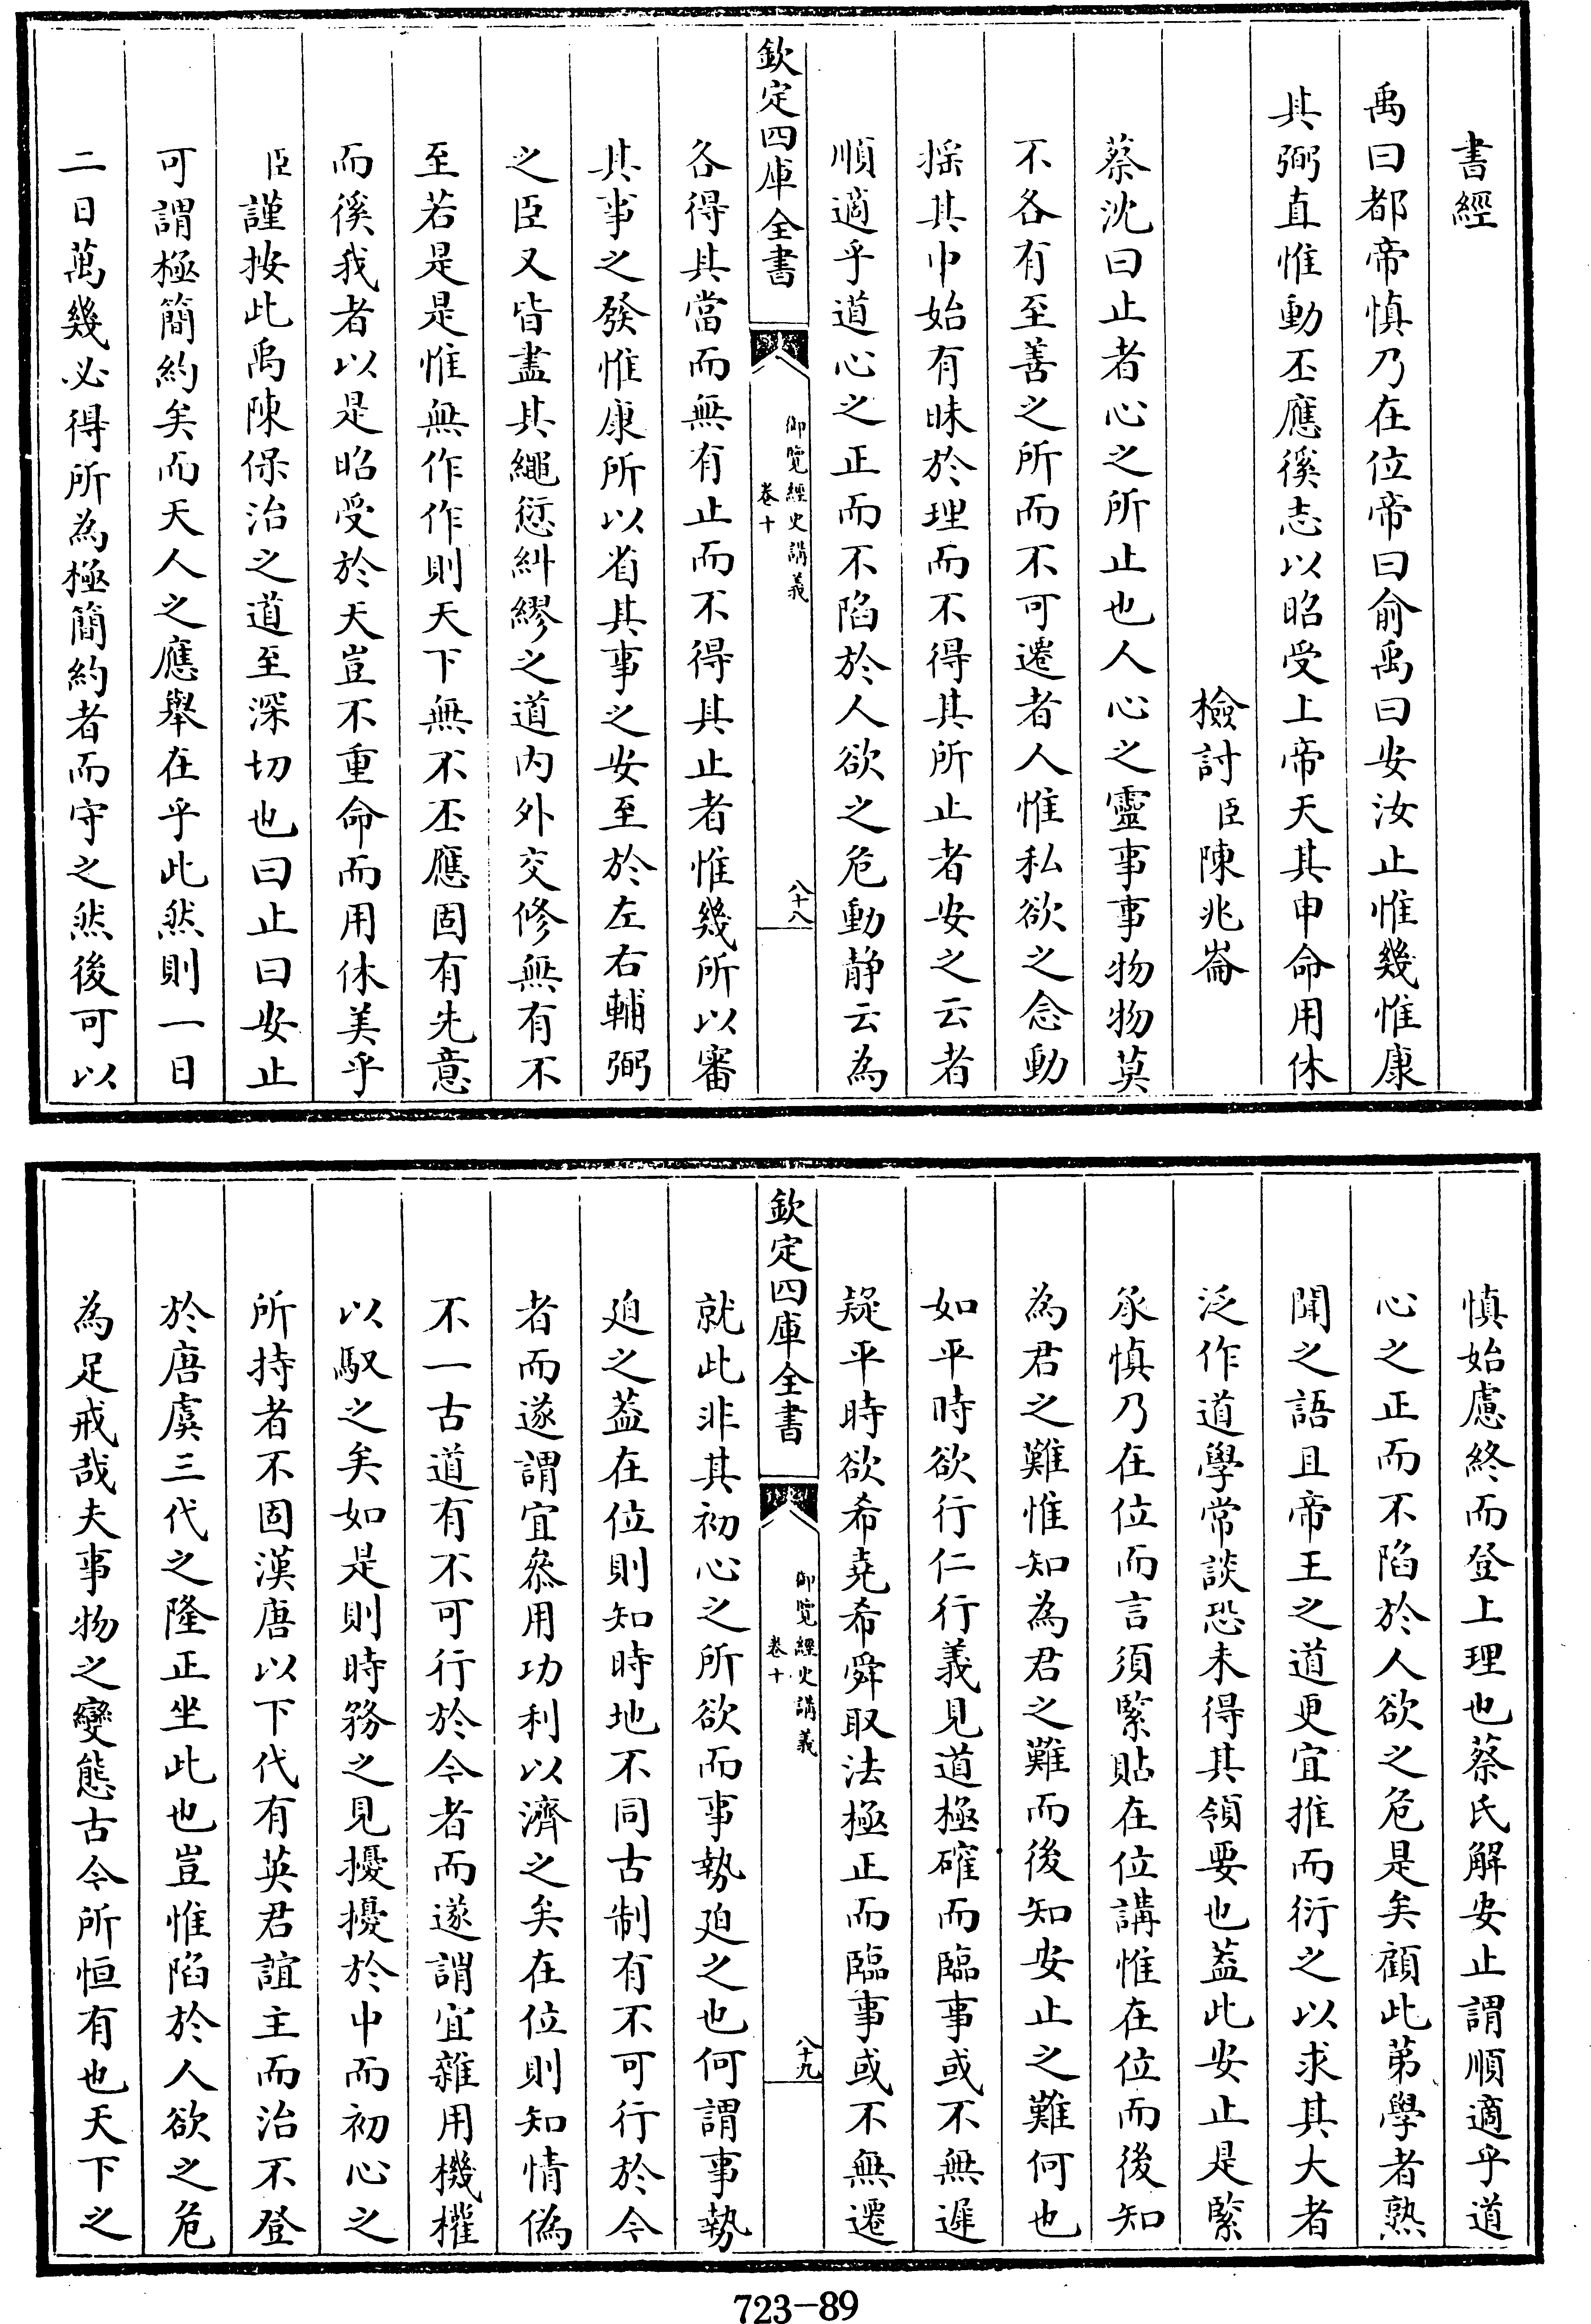 書經
禹曰都帝慎乃在位帝曰俞禹曰安汝止惟幾惟康
其弼直惟動丕應徯志以昭受上帝天其申命用休
檢討臣陳兆崙
蔡沈曰止者心之所止也人心之靈事事物物莫
不各有至善之所而不可遷者人惟私欲之念動
揺其中始有昧於理而不得其所止者安之云者
順適乎道心之正而不陷於人欲之危動静云為
欽定四庫全書
御覽經史講義
卷十
八十八
各得其當而無有止而不得其止者惟幾所以審
其事之發惟康所以省其事之安至於左右輔弼
之臣又皆盡其繩愆糾繆之道内外交修無有不
至若是是惟無作作則天下無不丕應固有先意
而徯我者以是昭受於天豈不重命而用休美乎
臣謹按此禹陳保治之道至深切也曰止曰安止
可謂極簡約矣而天人之應舉在乎此然則一日
二日萬幾必得所為極簡約者而守之然後可以
慎始慮終而登上理也蔡氏解安止謂順適乎道
心之正而不陷於人欲之危是矣顧此第學者熟
聞之語且帝王之道更宜推而衍之以求其大者
泛作道學常談恐未得其領要也葢此安止是緊
承慎乃在位而言須緊貼在位講惟在位而後知
為君之難惟知為君之難而後知安止之難何也
如平時欲行仁行義見道極確而臨事或不無遲
疑平時欲希堯希舜取法極正而臨事或不無遷
欽定四庫全書
御覽經史講義
卷十
八十九
就此非其初心之所欲而事勢廹之也何謂事勢
廹之葢在位則知時地不同古制有不可行於今
者而遂謂宜叅用功利以濟之矣在位則知情偽
不一古道有不可行於今者而遂謂宜雜用機權
以馭之矣如是則時務之見擾擾於中而初心之
所持者不固漢唐以下代有英君誼主而治不登
於唐虞三代之隆正坐此也豈惟陷於人欲之危
為足戒哉夫事物之變態古今所恒有也天下之
723-89